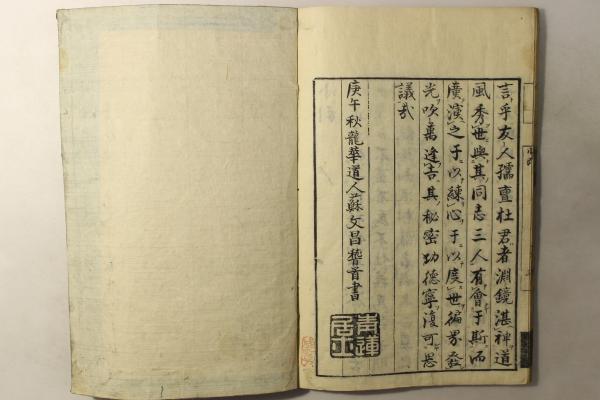 言乎友人孺亶杜君者淵鏡湛神道
風秀世與其同志三人有會于斯而
廣演之于以練心于以度世徧界發
光吹萬逢吉其秘密功德寧復可思
議哉
庚午秋龍華道人蘇文昌稽首書
青蓮
居士